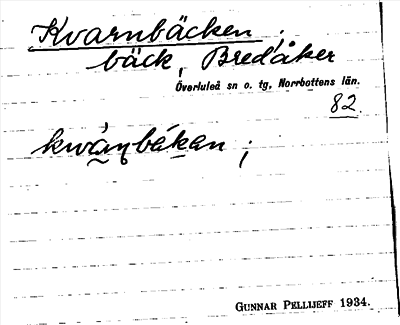 Kvarnbäcken;
bäck, Bredåker
Överluleå sn o. tg, Norrbottens län.
82.
kwànbákan;
GUNNAR PELLIJEFF 1934.